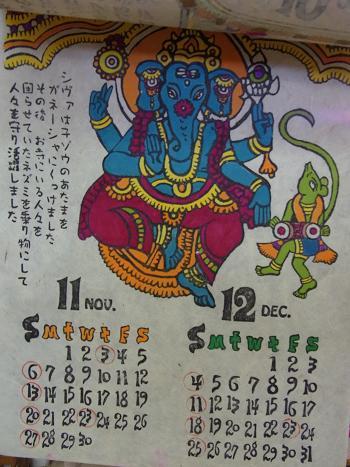 シヴァは子ゾウのあたまを
ガネーシャにくっつけました
その後 いる人々を
困らせていたネズミを乗り物にして
人々を守り活躍しました
11 NOV.
S m t w t F S
1 2 3 4 5
6 7 8 9 10 11 12
13 14 15 16 17 18 19
20 21 22 23 24 25 26
27 28 29 30
12 DEC.
S m t w t F S
1 2 3
4 5 6 7 8 9 10
11 12 13 14 15 16 17
18 19 20 21 22 23 24
25 26 27 28 29 30 31